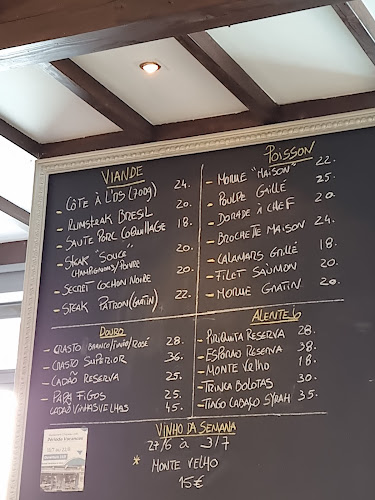 VIANDE
- CÔTE À L'OS (700g) 24.
- RUMSTEAK BRESIL 20.
- SAUTE PORC COQUILLAGE 18.
- STEAK "SOUCE" 20.
CHAMPIGNONS/POIVRE
- SECRET COCHON NOIRE 20.
- STEAK PATRON (GRATIN) 22.
POISSON
- MORUE "MAISON" 22.
- POULPE GRILLÉ 25.
- DORADE À CHEF 20.
- BROCHETTE MAISON 24.
- CALAMARS GRILLÉ 18.
- FILET SAUMON 20.
- MORUE GRATIN 20.
DOURO
- CRASTO BRANCO/TINTO/ROSÉ 28.
- CRASTO SUPERIOR 36.
- CADÃO RESERVA 25.
- PAPA FIGOS 25.
CADÃO VINHAS VELHAS 45.
ALENTEJO
- PIRIQUITA RESERVA 28.
- ESPORÃO RESERVA 38.
- MONTE VELHO 18.
- TRINCA BOLOTAS 30.
- TIAGO CABAÇO SYRAH 35.
VINHO DA SEMANA
27/6 à 3/7
* MONTE VELHO
15€